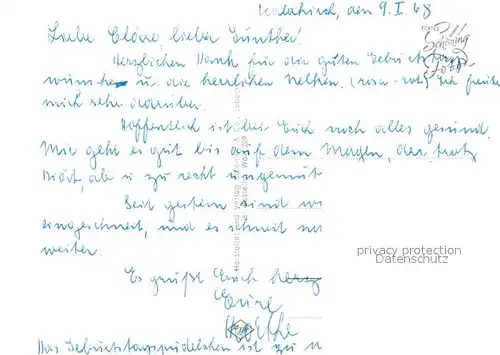 den 9. I. 68
Liebe Cläre, lieber Günther!
Herzlichen Dank für die guten Geburtstags-
wünsche u. die herrlichen Nelken. (rosa-rot) Ich freute
mich sehr darüber.
Hoffentlich ist bei Euch noch alles gesund.
Mir geht es gut bis auf dem Magen, der trotz
Diät, ab u. zu recht ungemüt
Seit gestern sind wi
eingeschneit, und es schneit
weiter.
Es grüßt Euch herz
Eure
ist zu
privacy protection
Datenschutz